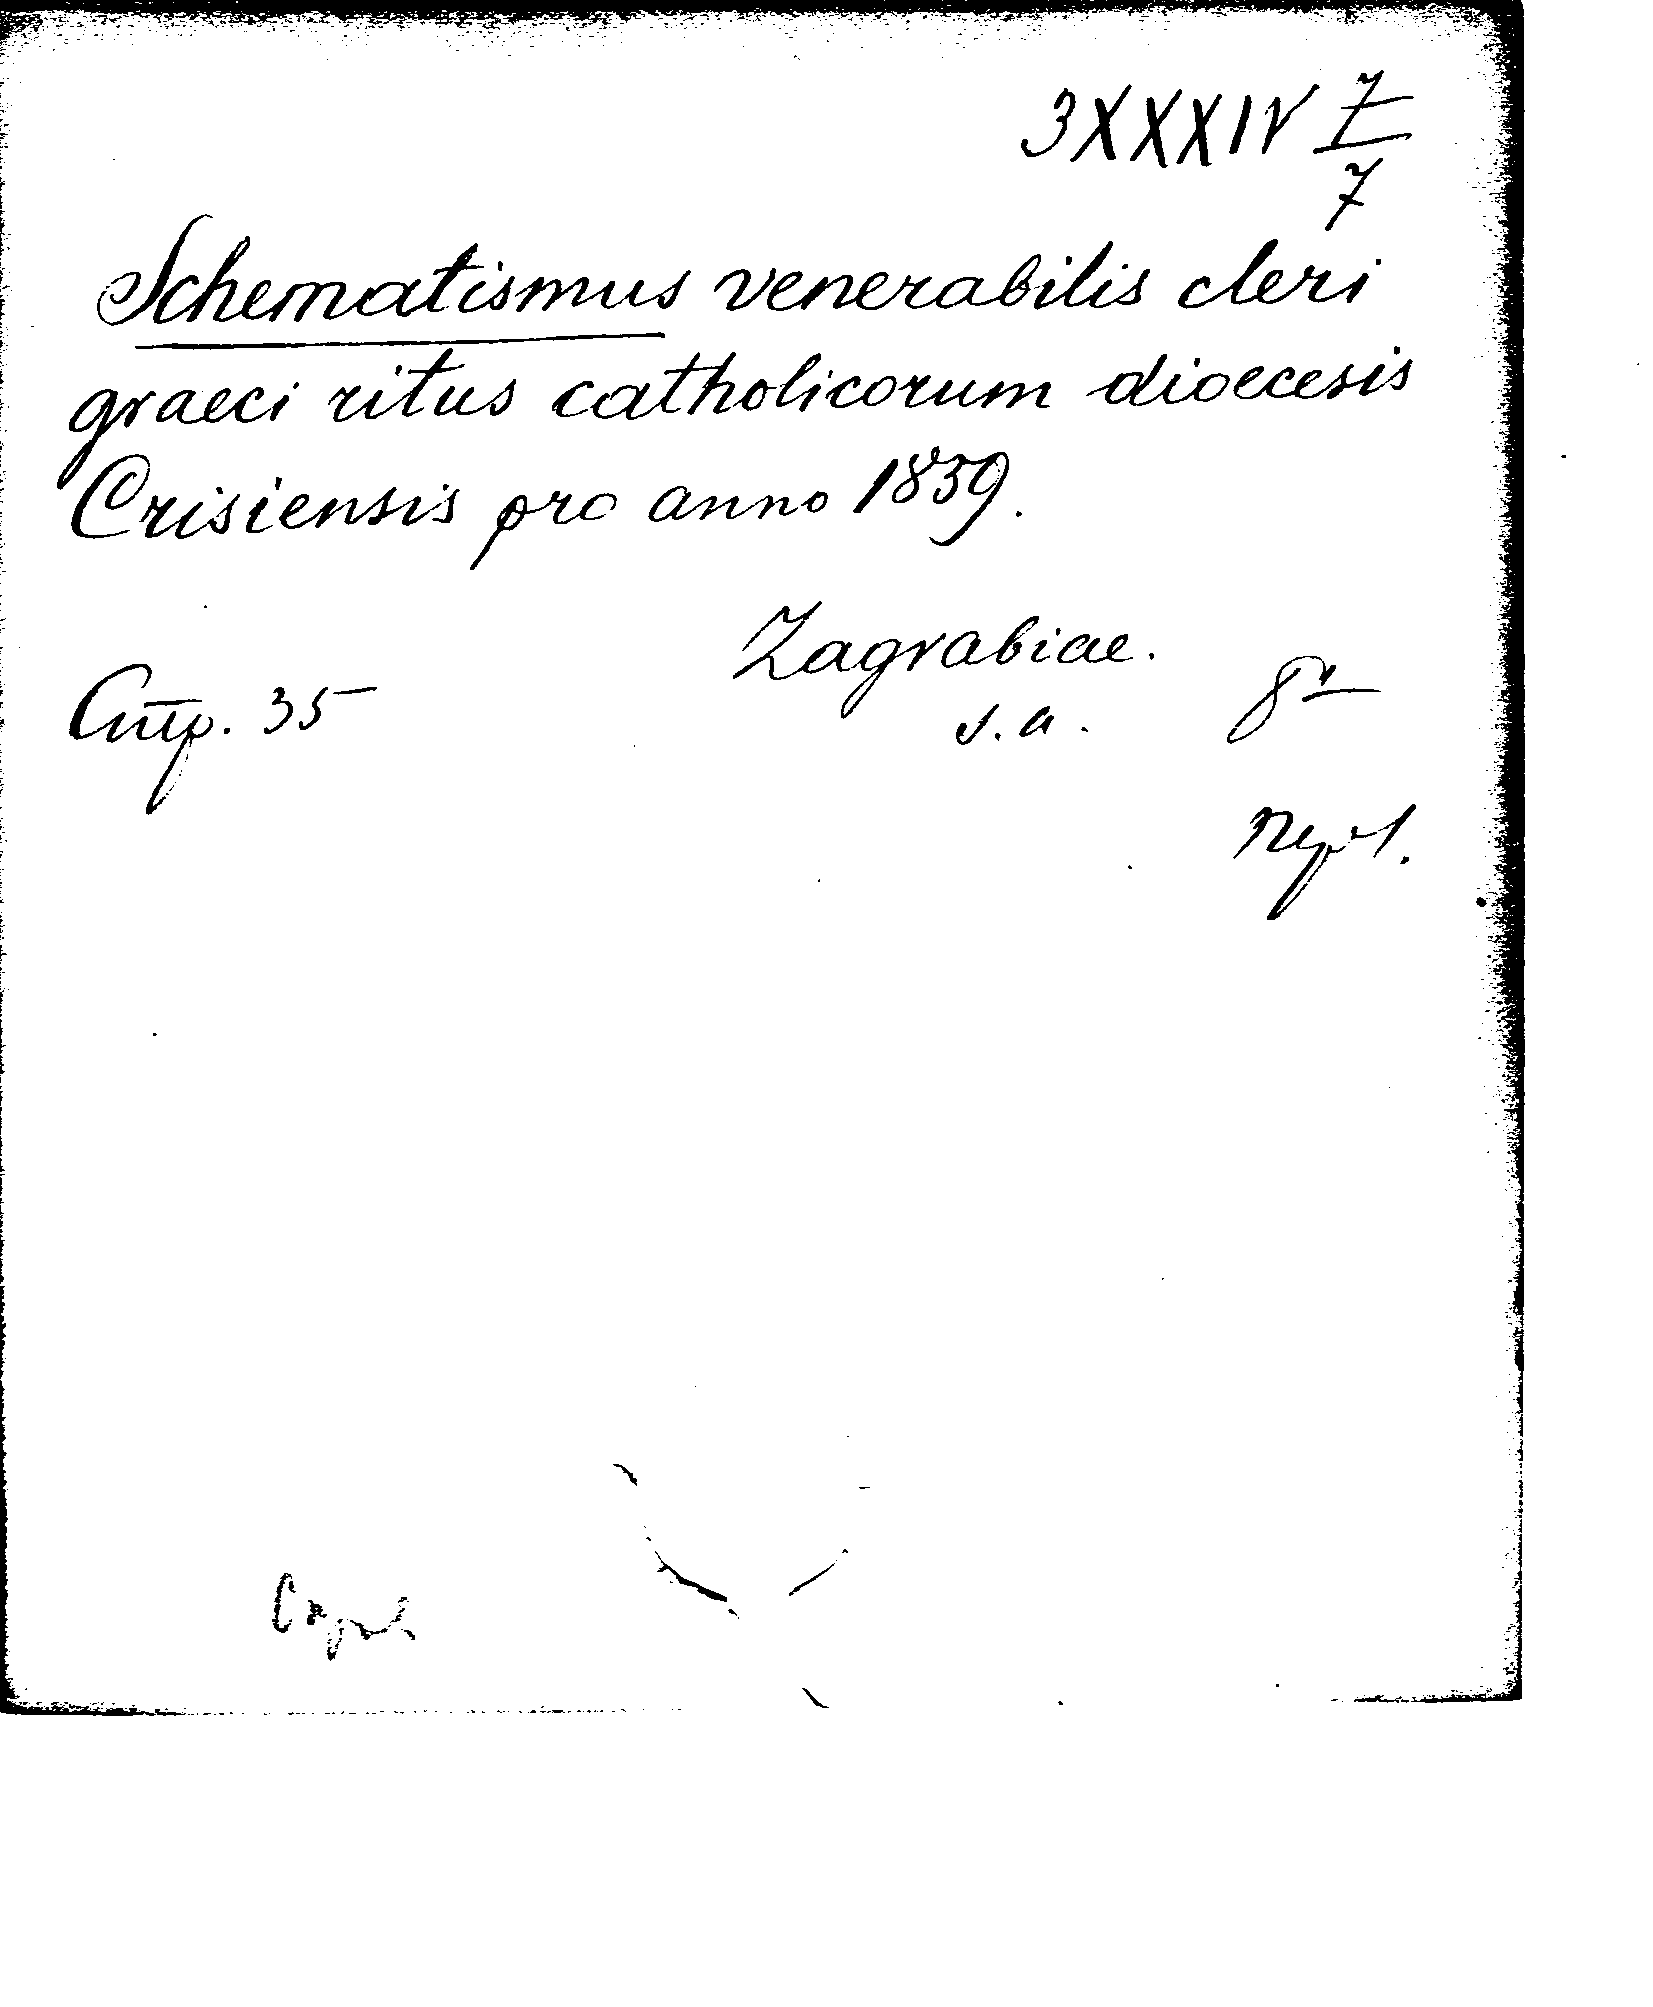 3XXXIV 7/7
Schematismus venerabilis cleri
graeci ritus catholicorum dioecesis
Crisiensis pro anno 1839.
Zagrabiae.
Стр. 35 s.a. 8º